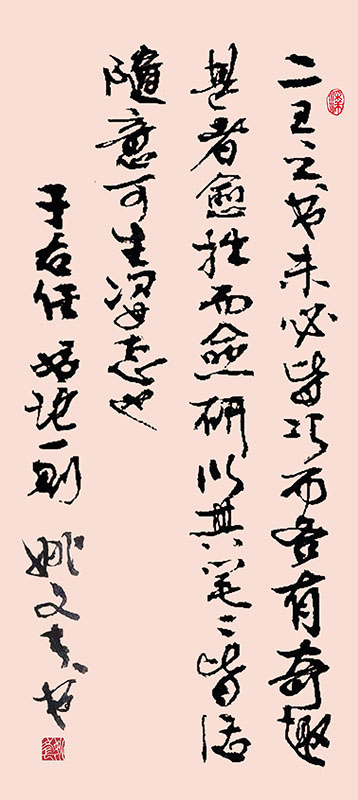 二王之书未必皆巧而各有奇趣
甚者愈拙而愈研以其笔々皆活
隨意可生姿态也
于右任 语一则 姚文书